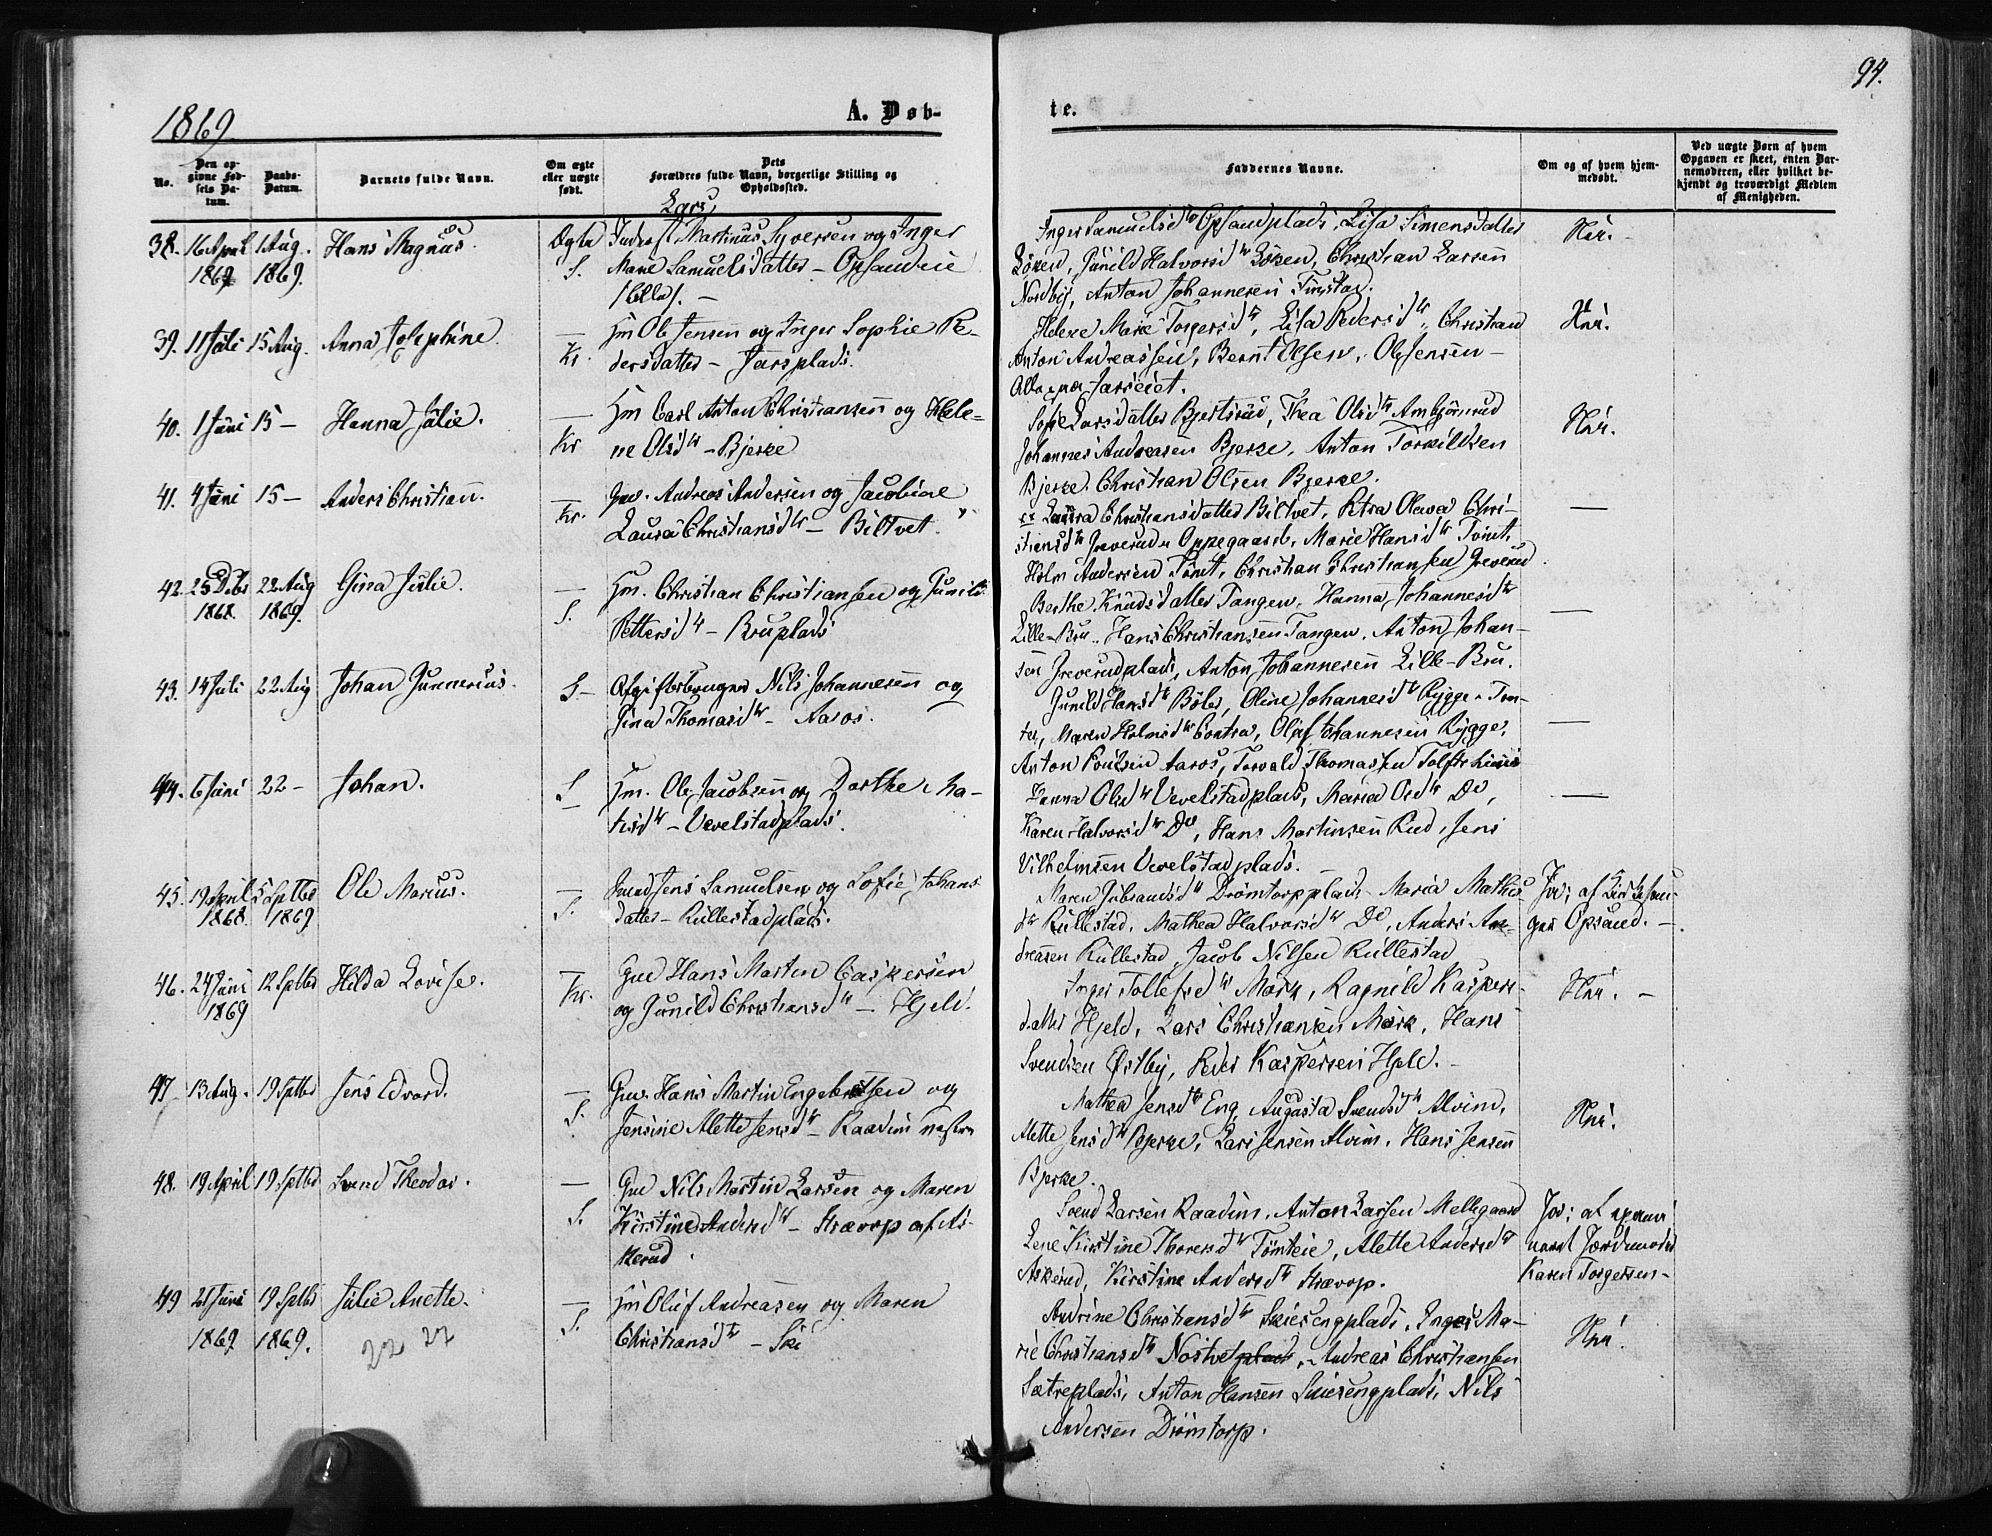 94.
1869
A. Døb-
te.
No.
Den op-
givne Fød-
sels Da-
tum.
Daabs-
Datum.
Barnets fulde Navn.
Om ægte
eller uægte
født.
Dets
Forældres fulde Navn, borgerlige Stilling og
Opholdssted.
Faddernes Navne.
Om og af hvem hjem-
medøbt.
Ved uægte Børn af hvem
Opgaven er skeet, enten Bar-
nemoderen, eller hvilket be-
kjendt og troværdigt Medlem
af Menigheden.
Lars
38. 16 April 1 Aug. Hans Magnus. Ægte Martinus Syversen og Inger
1869 1869. S. Marie Samuelsdatter – Opsandeie
Inger Samuelsdtr Opsandplads, Lisa Simensdatter
Løken, Gunild Halvorsdtr Løken, Christian Larsen
Nordby, Anton Johannesen Finstad.
39. 11 Juli 15 Aug. Anna Josephine — Hm Ole Jensen og Inger Sophie Pe-
Kr. dersdatter – Jarsplads.
Helene Marie Torgersdtr, Lisa Pedersdtr, Christian
Anton Andreassen, Bernt Olsen, Ole Jensen –
Alle paa Jarseiet.
40. 1 Juni 15 – Hanna Julie. — Hm Carl Anton Christiansen og Hele-
Kr ne Olsdtr – Bjerke
Sofie Larsdatter Bjertsrud, Thea Olsdtr Ambjørnrud
Johannes Andreasen Bjerke, Anton Torkildsen
Bjerke. Christian Olsen Bjerke.
41. 4 Juni 15 – Anders Christian. — Gm. Andreas Andersen og Jacobine
Kr. Laura Christiansdtr – Biltvet.
Laura Christiansdatter Biltvet, Petra Olava Chri-
stiansdtr Greverud Oppegaard, Marie Hansdtr Tømt,
Holm Andersen Tømt, Christian Christiansen Greverud
42. 25 Dcbr 22 Aug Gina Julie. — Hm. Christian Christiansen og Gunild
1868. 1869. S. Pettersdtr – Bruplads
Berthe Knudsdatter Tangen, Hanna Johannesdtr
Lille-Bru, Hans Christiansen Tangen, Anton Johan-
sen Greverudplads, Anton Johannesen Lille-Bru.
43. 14 Juli 22 Aug Johan Gunnerius. S – Afgiftsbruger Nils Johannesen og
Gina Thomasdtr – Aaros.
Gunild Hansdtr Bøler, Oline Johannesdtr Rygge – Tom-
ter, Maren Holmsdtr Contra, Olaf Johannesen Rygge,
Anton Poulsen Aaros, Torvald Thomassen
44. 6 Juni 22 – Johan. S — Hm. Ole Jacobsen og Dorthe Ma-
thisdtr – Vevelstadplads.
Hanna Olsdtr Vevelstadplads, Maria Olsdtr Do,
Karen Halvorsdtr Do, Hans Martinsen Rud, Jens
Vilhelmsen Vevelstadplads.
45. 19 April 5 Sptbr Ole Marius. — Jens Samuelsen og Sofie Johans-
1868. 1869 S. datter – Rullestadplads.
Maren Gulbrandsdtr Drømtorpplads – Maria Mathis-
dtr Rullestad, Mathea Halvorsdtr Do, Anders An-
dreasen Rullestad, Jacob Nilsen Rullestad
Jo; af Kirkesan-
ger Opsand. –
46. 24 Juni 12 Sptbr Hilda Lovise. — Gm Hans Martin Caspersen
1869 Kr. og Gunild Christiansdtr – Hjeld.
Inger Tollefsdtr Mørk, Ragnild Kaspers-
datter Hjeld, Lars Christiansen Mørk, Hans
Svendsen Østby, Peder Kaspersen Hjeld. –
47 13 Aug. 19 Sptbr Jens Edvard. — Gm. Hans Martin Engebretsen og
S. Jensine Alette Jensdtr – Raadim nestre
Mathea Jensdtr Eng, Augusta Svendsdtr Alvim,
Alette Jensdtr Bjerke, Lars Jensen Alvim, Hans Jensen
Bjerke.
48. 19 April 19 Sptbr Svend Theodor. — Gm Nils Martin Larsen og Maren
S. Kirstine Andersdtr – Strævop af As-
kerud.
Svend Larsen Raadim, Anton Larsen Mellegaard
Lene Kirstine Thoresdtr Tømteie, Alette Andersdtr
Askerud, Kirstine Andersdtr Strævop.
Jo; af exami-
neret Jordmoder
Karen Torgersen –
49 21 Juni 19 Sptbr Julie Anette. — Hm Oluf Andreasen og Maren
1869. 1869. S. Christiansdtr – Ski
22 22
Andrine Christiansdtr Skiesengplads, Inger Ma-
rie Christiansdtr Nostvetplads, Andreas Christiansen
Sætreplads, Anton Hansen Skiesengplads, Nils
Andersen Drømtorp.